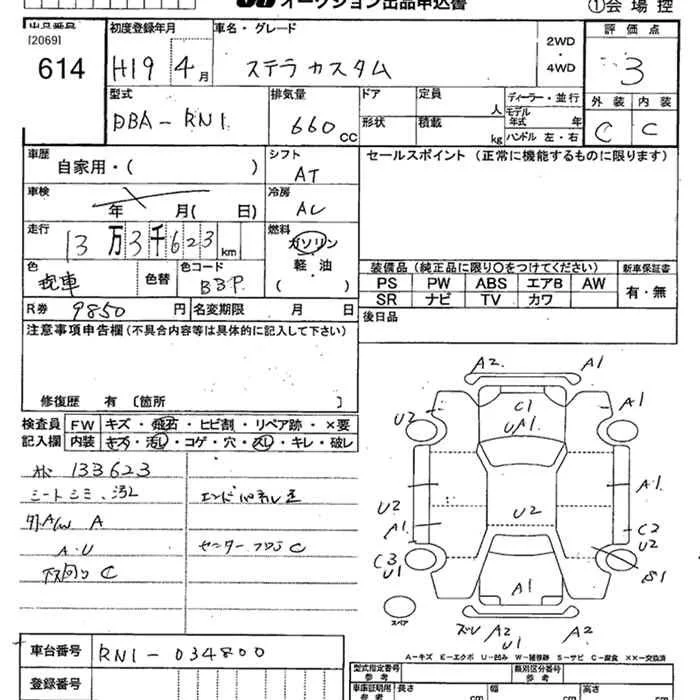 オークション出品申込書
①会場控
出品番号 初度登録年月 車名・グレード 評価点
[2069]
614 H19 4月 ステラカスタム 2WD・4WD 3
型式 排気量 ドア 定員 人 ディーラー・並行 外装 内装
DBA-RN1 660 CC 形状 積載 kg モデル年式 年 C C
ハンドル 左・右
車歴 自家用・( ) シフト AT セールスポイント(正常に機能するものに限ります)
車検 年 月( 日) 冷房 AC
走行 13万3千623km 燃料 ガソリン
軽・油
( )
色 色替 色コード B3P 装備品(純正品に限り○をつけてください) 新車保証書
PS PW ABS エアB AW 有・無
SR ナビ TV カワ
R券 9850円 名変期限 月 日 後日品
注意事項申告欄(不具合内容等は具体的に記入して下さい)
修復歴 有〔箇所 〕
検査員 FW キズ・飛石・ヒビ割・リペア跡・×要
記入欄 内装 キズ・汚し・コゲ・穴・スレ・キレ・破レ
133623
シートシミ、汚レ エンドパネル
外A/W A
A・U センターフロアC
下回りC
A2 A1
U2 C1 A1
UA1
U2 A1
A1 U2 C2
U2
C3
U1 A1 S1
スペア ズレ A2 A2
U1
A-キズ E-エクボ U-凹み W-補修跡 S-サビ C-腐食 ××-交換済
車台番号 RN1-034800
登録番号
型式指定番号 参考 類別区分番号 参考
車庫証明用 参考 長さ cm 幅 cm 高さ cm